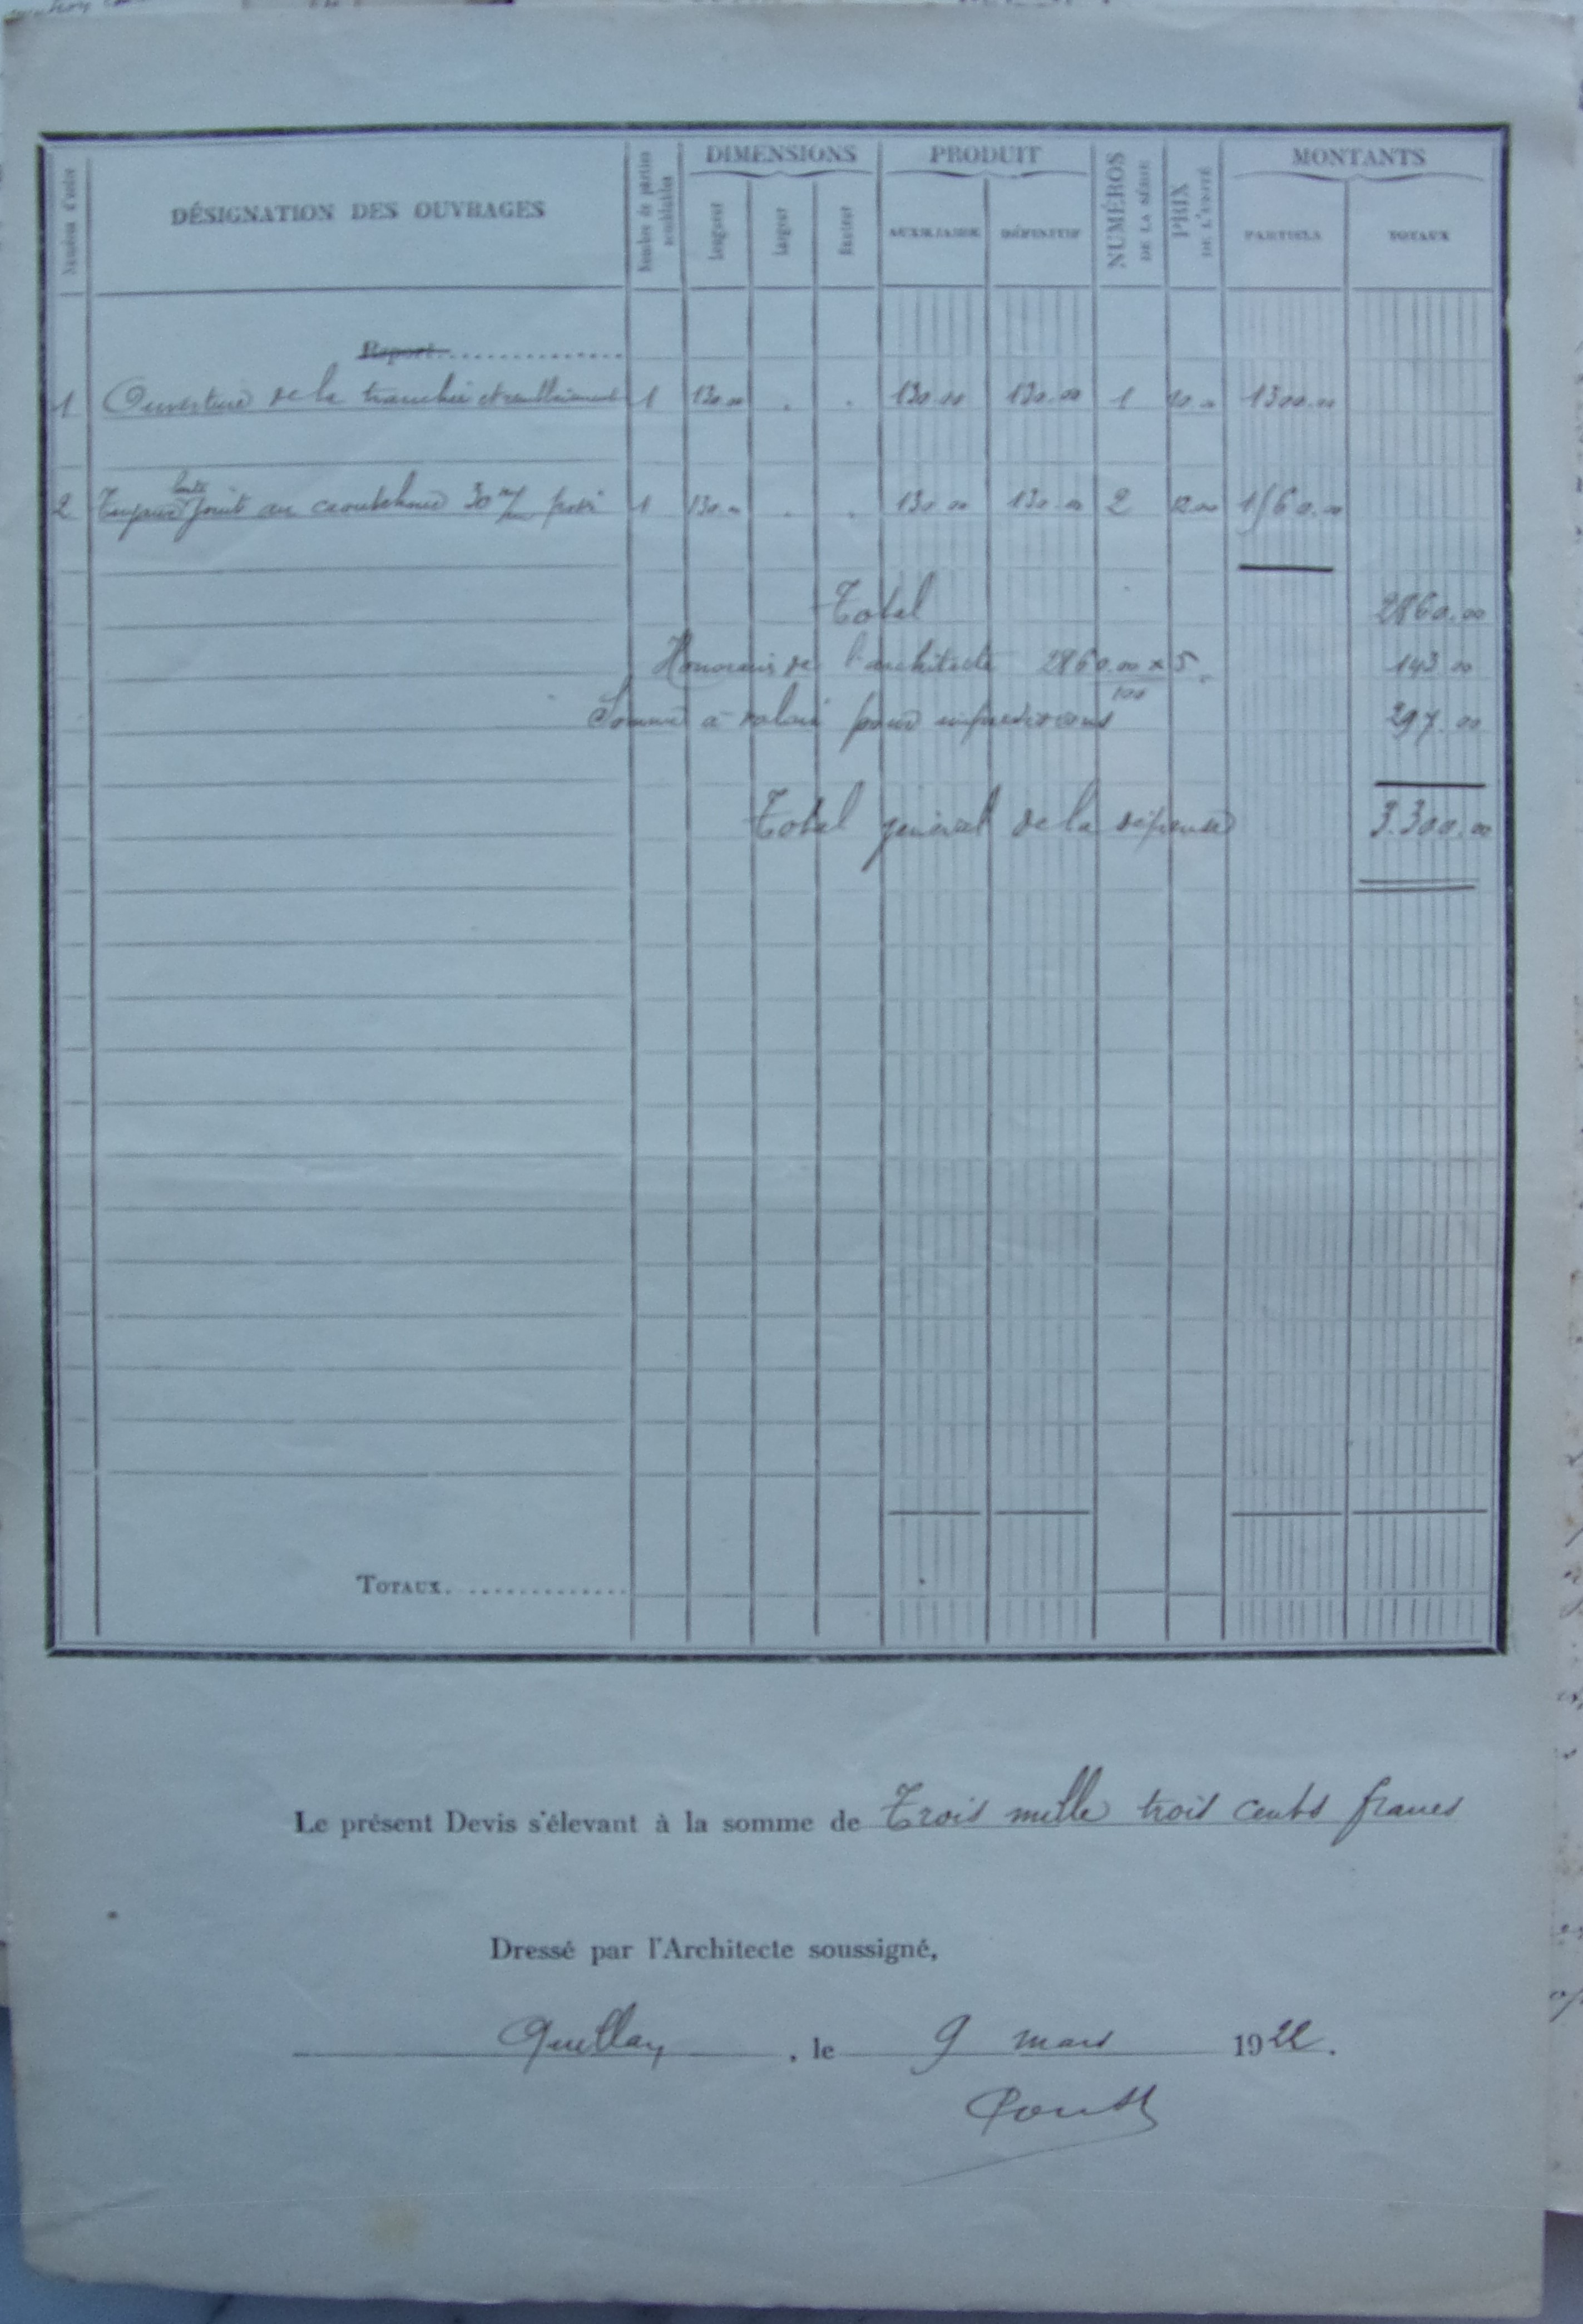 Numéros d'ordre
DÉSIGNATION DES OUVRAGES
Nombre de parties semblables
DIMENSIONS
Longueur Largeur Hauteur
PRODUIT
AUXILIAIRE DÉFINITIF
NUMÉROS DE LA SÉRIE
PRIX DE L'UNITÉ
MONTANTS
PARTIELS TOTAUX
Report
1 Ouverture de la tranchée et remblaiement 1 130.00 . . 130.00 130.00 1 10.00 1300.00
fonte
2 Tuyaux joint au caoutchouc 30 m/m posé 1 130.00 . . 130.00 130.00 2 12.00 1560.00
Total 2860.00
Honoraires de l'architecte 2860.00 x 5 143.00
100
Somme à valoir pour imprévisions 297.00
Total général de la dépense 3.300.00
TOTAUX.
Le présent Devis s'élevant à la somme de Trois mille trois cents francs
Dressé par l'Architecte soussigné,
Quillan, le 9 mars 1922.